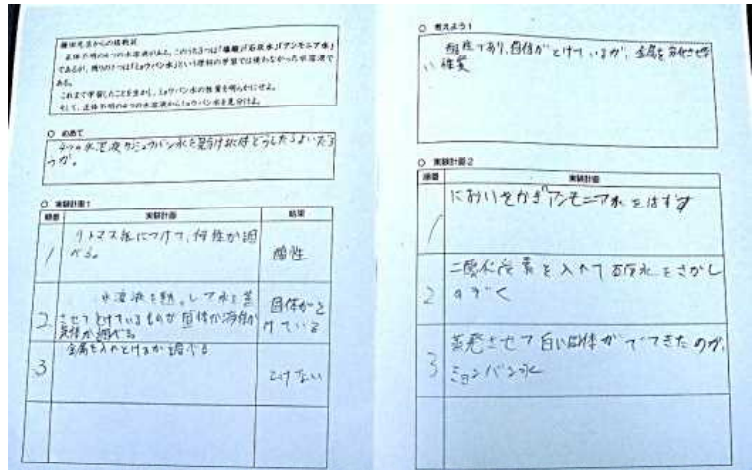 藤田先生からの挑戦状
正体不明の4つの水溶液がある。このうち3つは「塩酸」「石灰水」「アンモニア水」
であるが、残りの1つは「ミョウバン水」という理科の学習では使わなかった水溶液で
ある。
これまで学習したことを生かし、ミョウバン水の性質を明らかにせよ。
そして、正体不明の4つの水溶液からミョウバン水を見分けよ。
○ めあて
4つの水溶液からミョウバン水を見分けるにはどうしたらよいだろ
うか。
○ 実験計画1
順番 実験計画 結果
1 リトマス紙につけて、何性か調
べる。
酸性
2 水溶液を熱して水を蒸
させてとけているものが固体か液体か
気体か調べる
固体がと
けている
3 金属を入れとけるか調べる
とけない
○ 考えよう1
酸性であり、固体がとけているが、金属を変化させな
い性質
○ 実験計画2
順番 実験計画
1 においをかぎアンモニア水をはずす
2 二酸化炭素を入れて石灰水をさがし
のぞく
3 蒸発させて白い固体がでてきたのが、
ミョウバン水